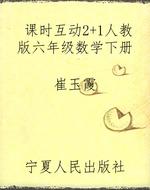 课时互动2+1人教
版六年级数学下册
崔玉霞
宁夏人民出版社